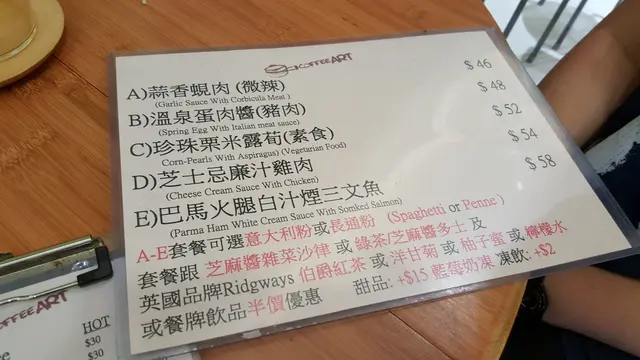 KOFFEE ART
A)蒜香蜆肉 (微辣) $ 46
(Garlic Sauce With Corbicula Meat )
B)溫泉蛋肉醬(豬肉) $ 48
(Spring Egg With Italian meat sauce)
C)珍珠粟米露荀(素食) $ 52
Corn-Pearls With Aspiragus) (Vegetarian Food)
D)芝士忌廉汁雞肉 $ 54
(Cheese Cream Sauce With Chicken)
E)巴馬火腿白汁煙三文魚 $ 58
(Parma Ham White Cream Sauce With Somked Salmon)
A-E套餐可選意大利粉或長通粉 (Spaghetti or Penne )
套餐跟 芝麻醬雜菜沙律 或 綠茶/芝麻醬多士 及
英國品牌Ridgways 伯爵紅茶 或 洋甘菊 或 柚子蜜 或 檸檬水
或餐牌飲品半價優惠 甜品: +$15 藍莓奶凍 凍飲: +$2
OFFEE ART
HOT
$30
$30